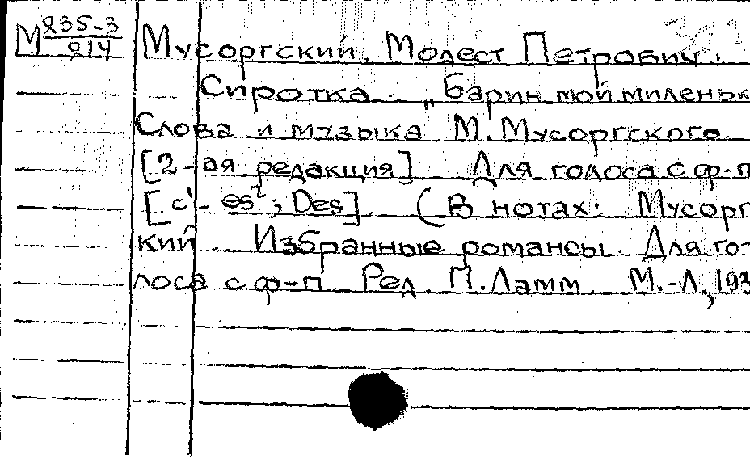 М 835-3/814 Мусоргский, Модест Петрович.
Сиротка. „Барин мой миленьк
Слова и музыка М. Мусоргского
[2-ая редакция] Для голоса с ф-п
[c'- es², Des] (В нотах: Мусорг
кий. Избранные романсы. Для го-
лоса с ф-п Ред. П. Ламм. М.-Л., 193